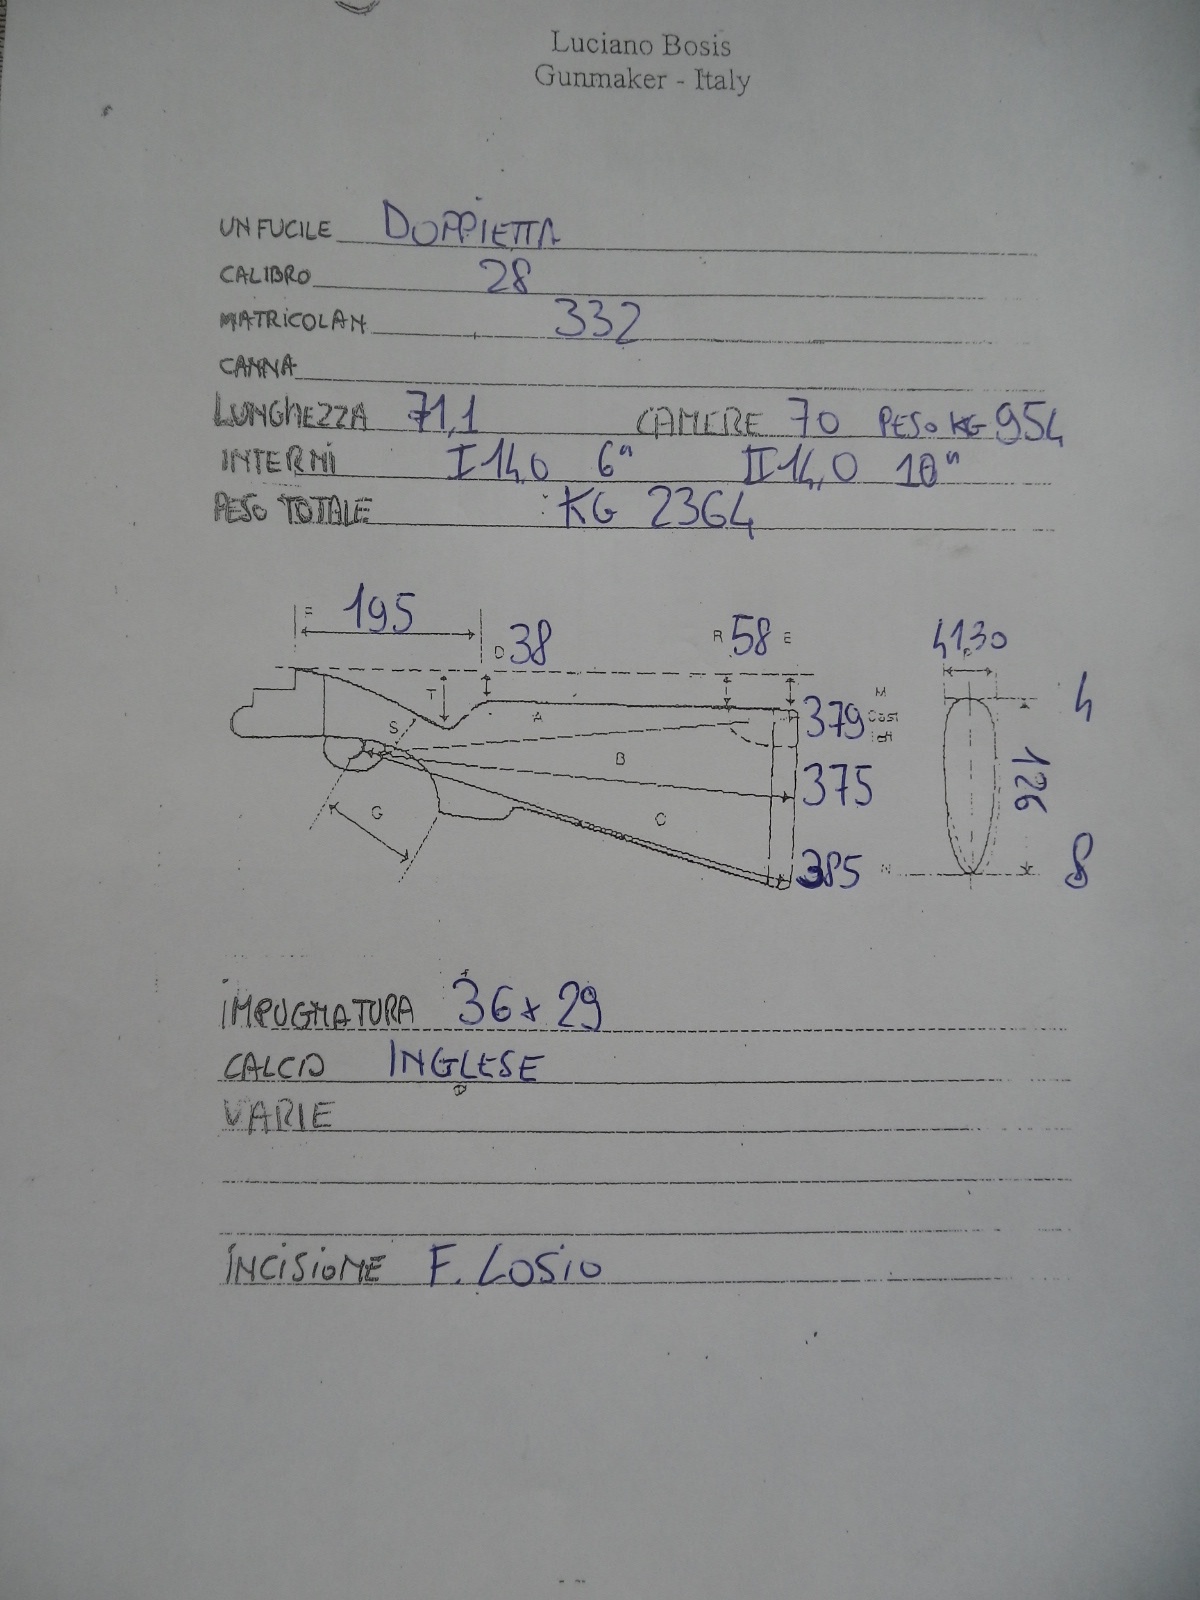 Luciano Bosis
Gunmaker - Italy
UN FUCILE DOPPIETTA
CALIBRO 28
MATRICOLA N 332
CANNA
LUNGHEZZA 71,1 CAMERE 70 PESO KG 954
INTERNI I 14,0 6" II 14,0 10"
PESO TOTALE KG 2364
F 195
D 38 R 58 E 41,30
T M 4
S A 379 Cast
B 375 126
G C
385 N 8
IMPUGNATURA 36 x 29
CALCIO INGLESE
VARIE
INCISIONE F. LOSIO